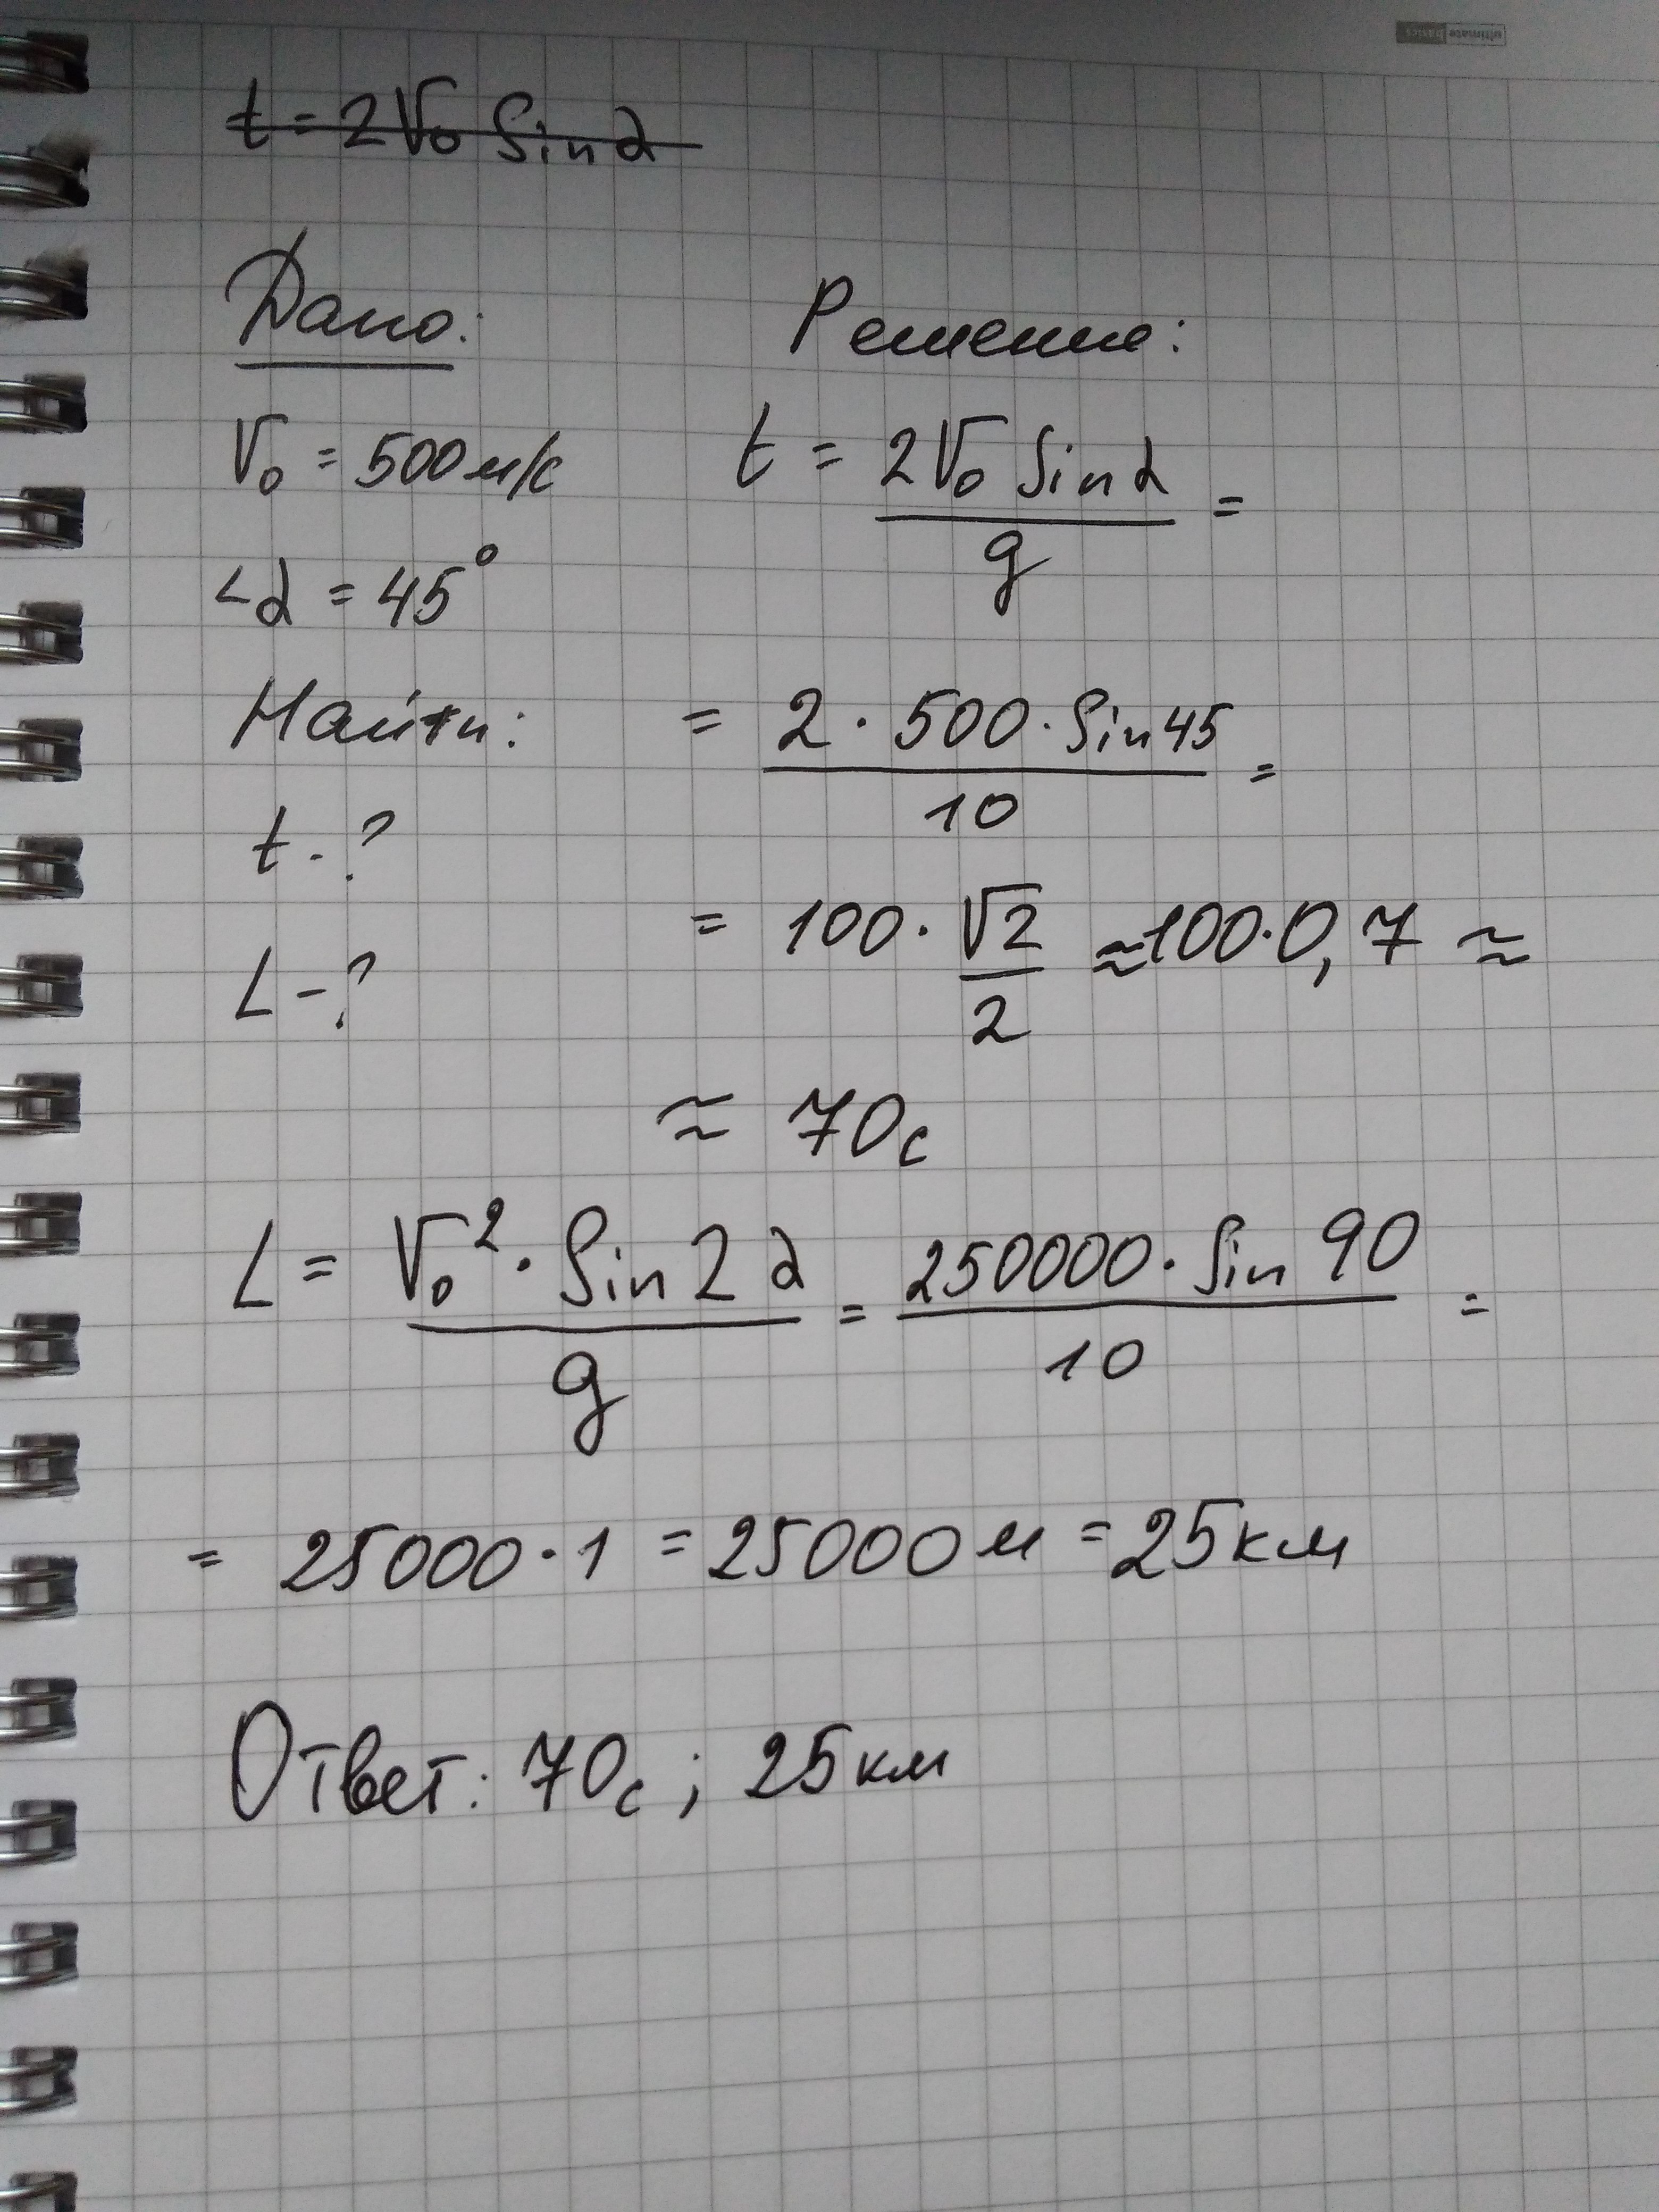 ultimate basics
t = 2V₀ Sin α
Дано:
V₀ = 500 м/с
∠α = 45°
Найти:
t - ?
L - ?
Решение:
t = 2V₀ Sin α / g =
= 2 · 500 · Sin 45 / 10 =
= 100 · √2 / 2 ≈ 100 · 0,7 ≈
≈ 70 с
L = V₀² · Sin 2 α / g = 250000 · Sin 90 / 10 =
= 25000 · 1 = 25000 м = 25 км
Ответ: 70 с ; 25 км